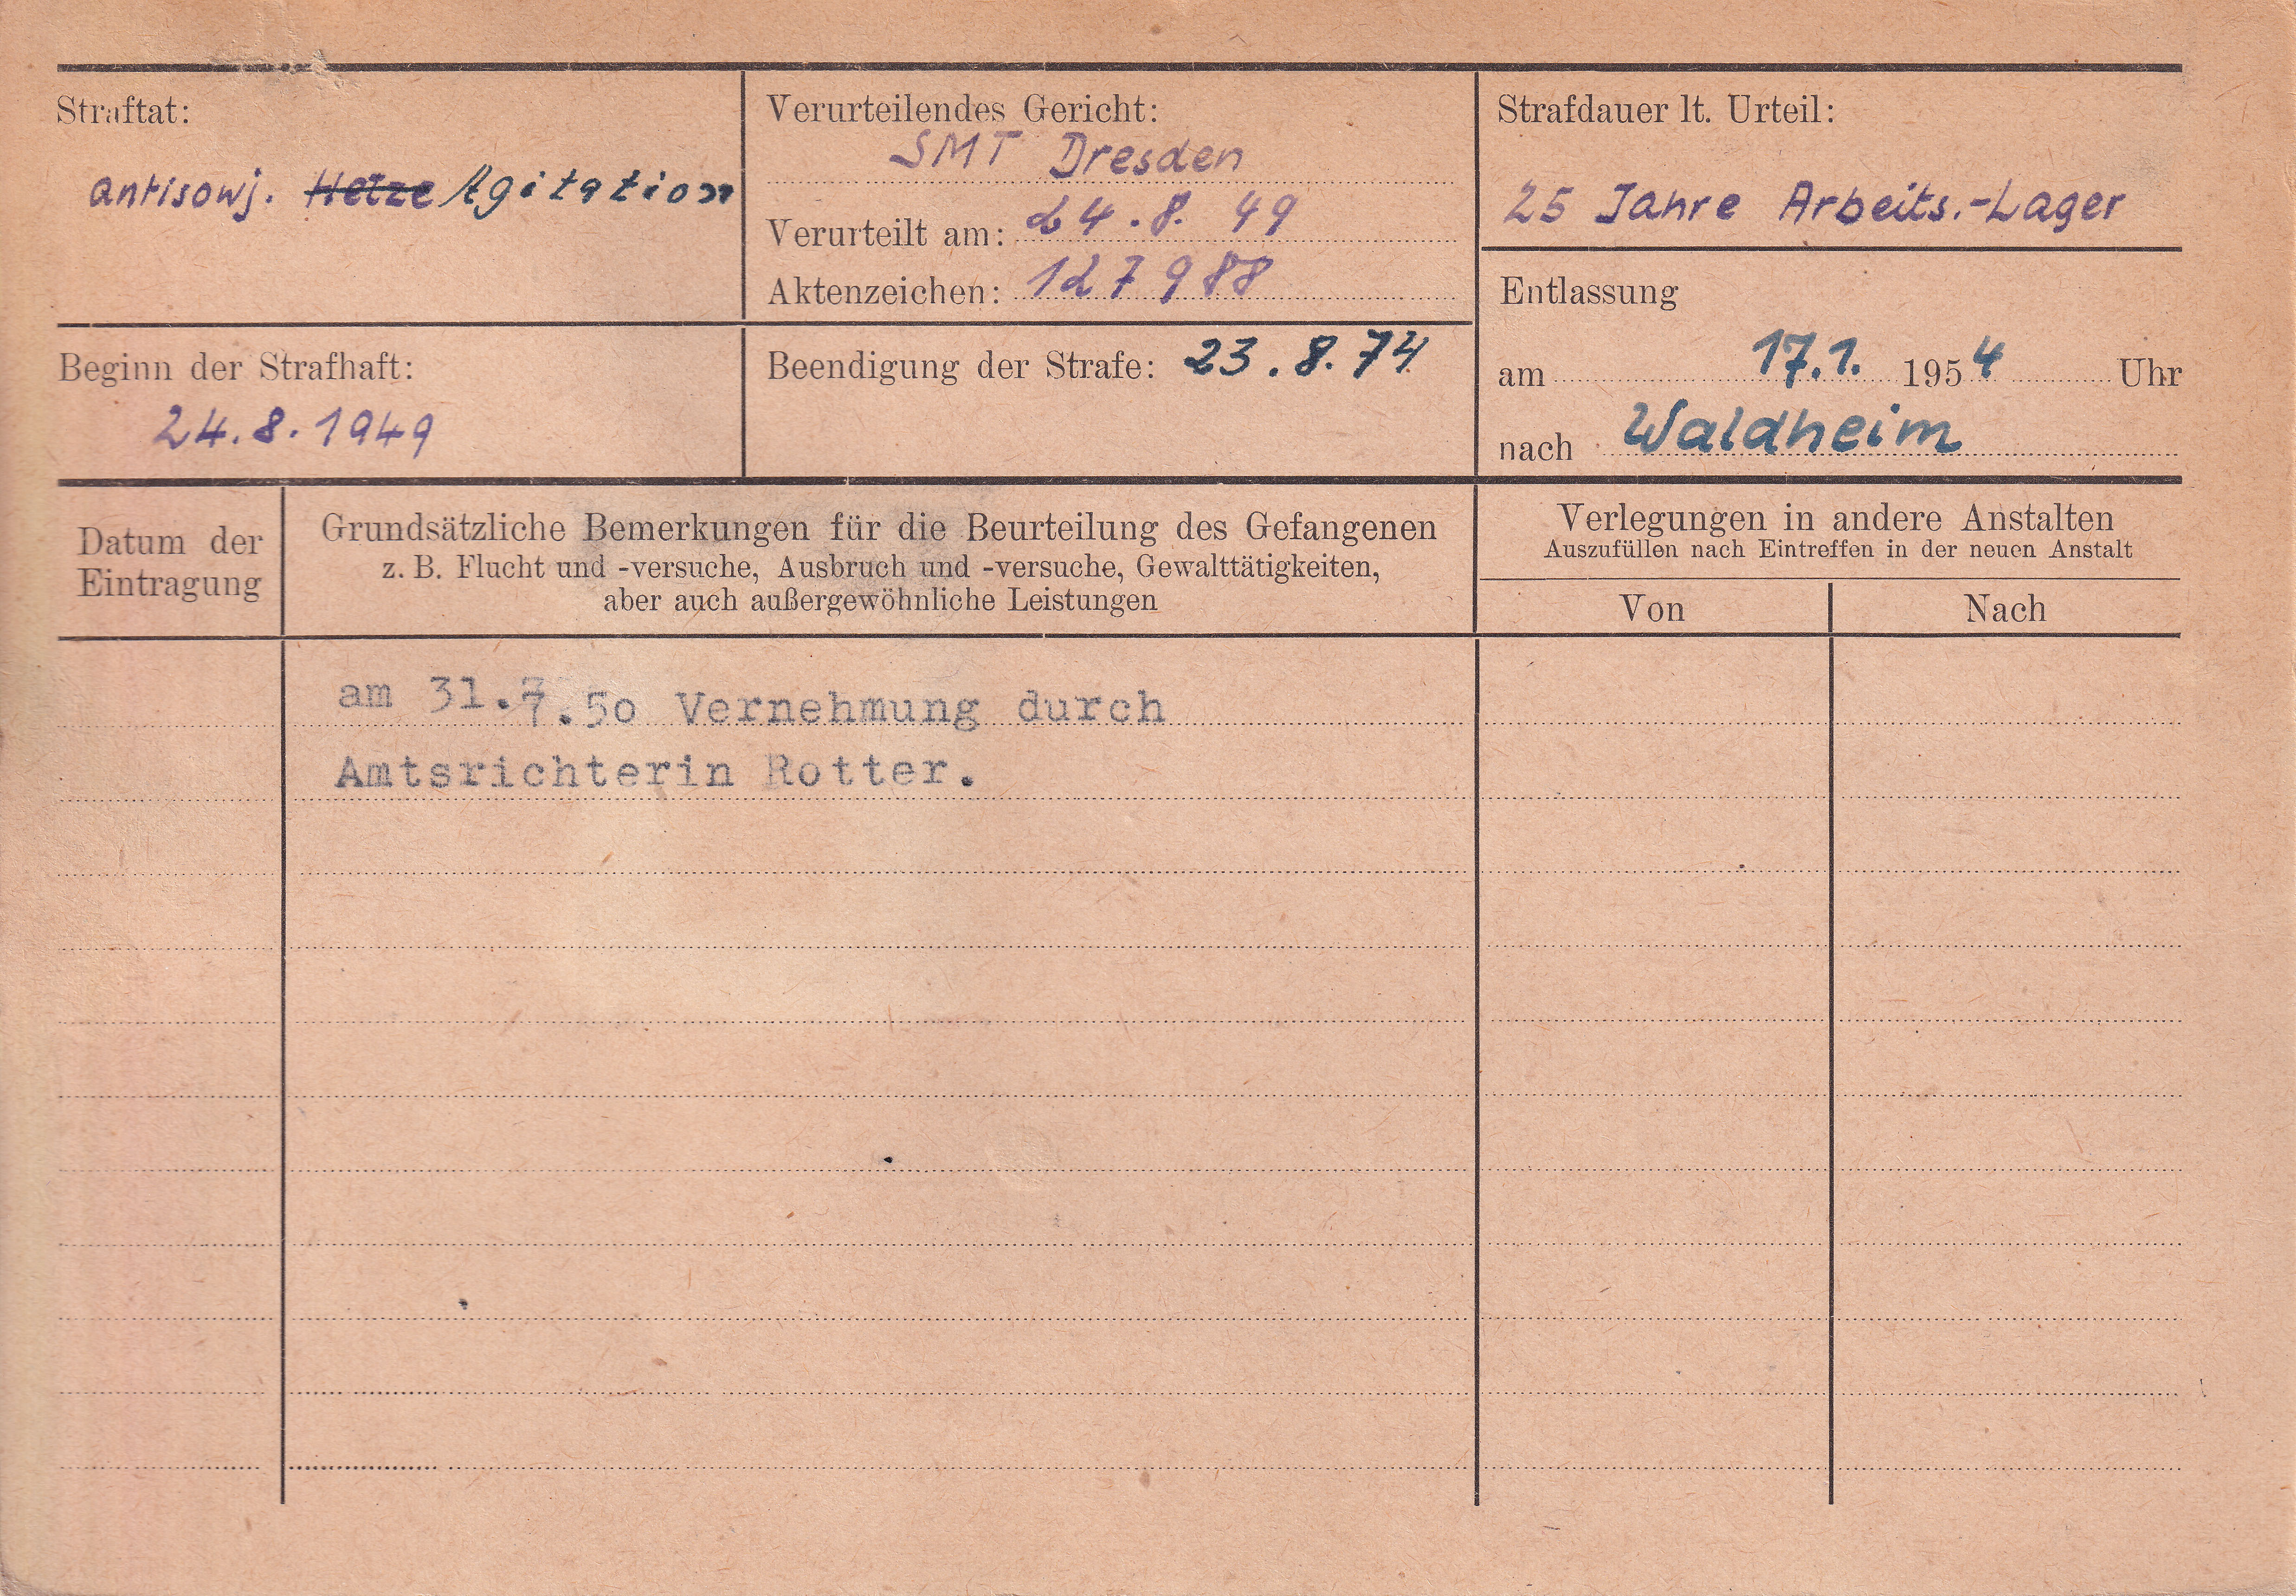 Straftat:
antisowj. Hetze Agitation
Verurteilendes Gericht:
SMT Dresden
Verurteilt am: 24.8.49
Aktenzeichen: 127988
Strafdauer lt. Urteil:
25 Jahre Arbeits.-Lager
Beginn der Strafhaft:
24.8.1949
Beendigung der Strafe: 23.8.74
Entlassung
am 17.1. 1954 Uhr
nach Waldheim
Datum der
Eintragung
Grundsätzliche Bemerkungen für die Beurteilung des Gefangenen
z. B. Flucht und -versuche, Ausbruch und -versuche, Gewalttätigkeiten,
aber auch außergewöhnliche Leistungen
Verlegungen in andere Anstalten
Auszufüllen nach Eintreffen in der neuen Anstalt
Von
Nach
am 31.7.50 Vernehmung durch
Amtsrichterin Rotter.